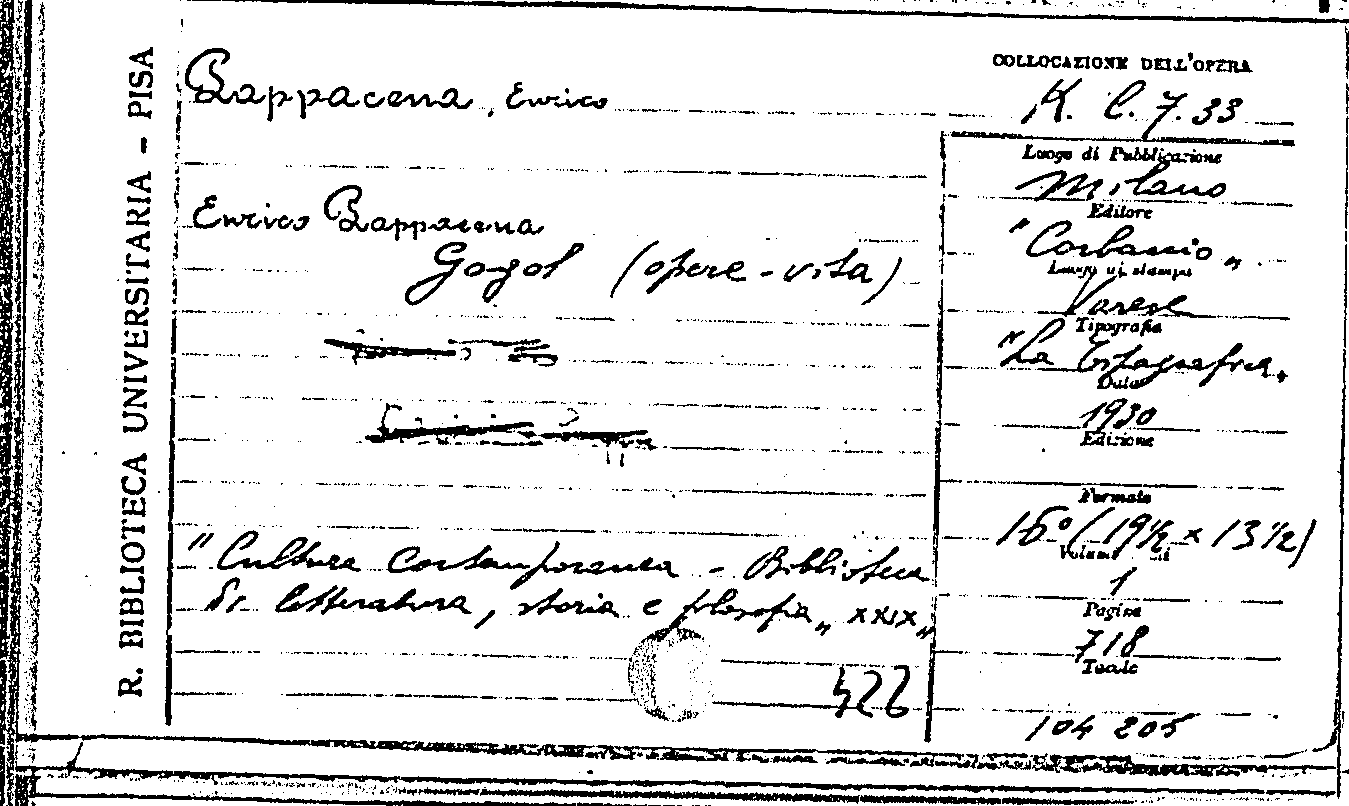 R. BIBLIOTECA UNIVERSITARIA – PISA
Pappacena, Enrico
Enrico Pappacena
Gogol (opere - vita)
"Cultura Contemporanea - Biblioteca
di letteratura, storia e filosofia„ XXIX„
422
COLLOCAZIONE DELL'OPERA
K. l. 7. 33
Luogo di Pubblicazione
Milano
Editore
"Corbaccio„
Luogo di stampa
Varese
Tipografia
"La Tipografica„
Data
1930
Edizione
Formato
16° (19½ × 13½)
Volumi
1
Pagine
718
Tavole
104 205